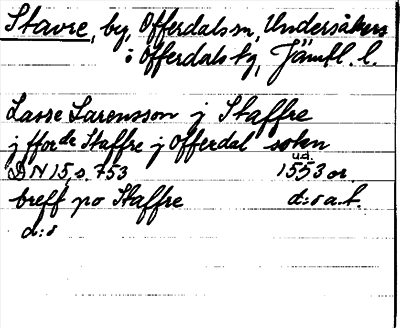 Stavre, by, Offerdals sn, Undersåkers
i Offerdals tg, Jämtl. l.
Lasse Larensson j Staffre
j fforde Staffre j Offerdal soken
u.d.
DN 15, s. 753 1553 or.
breff po Staffre d:o a.t.
d:o